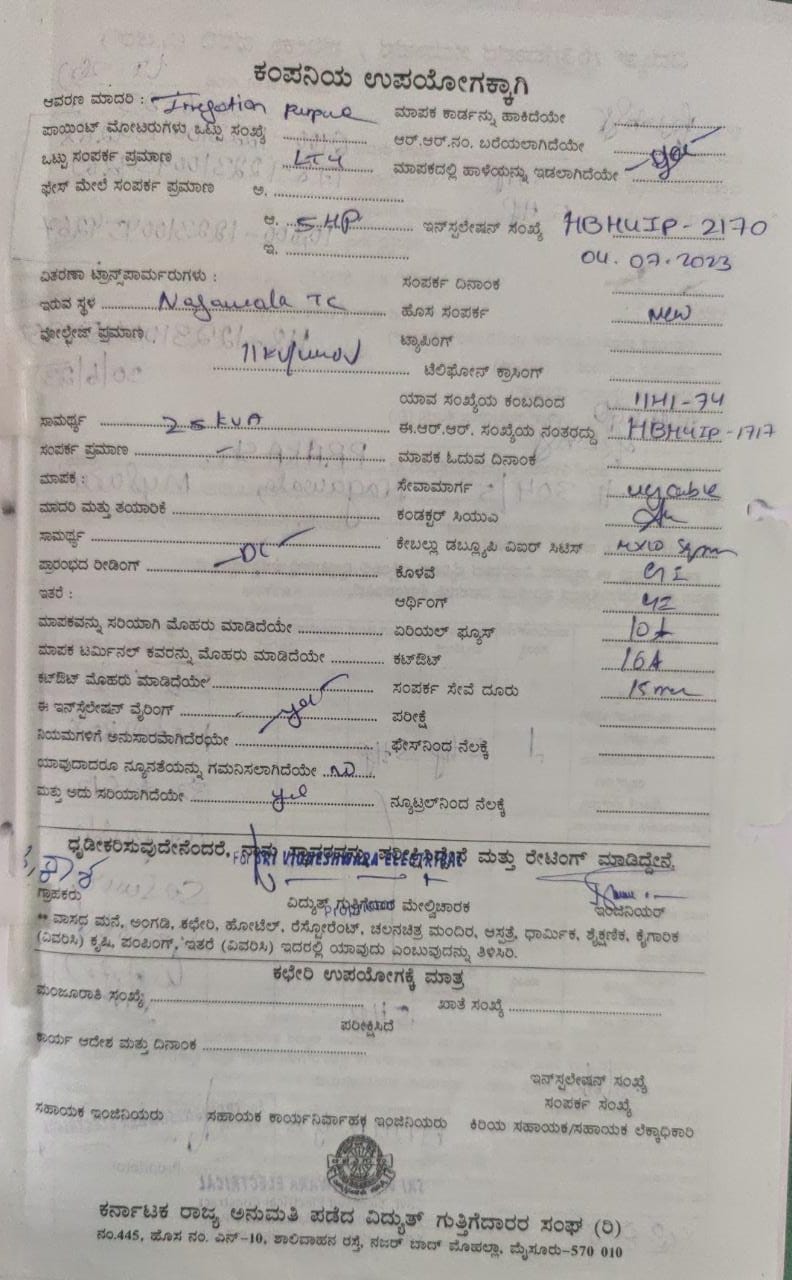 ಕಂಪನಿಯ ಉಪಯೋಗಕ್ಕಾಗಿ
ಆವರಣ ಮಾದರಿ : Irregation Purpue ಮಾಪಕ ಕಾರ್ಡನ್ನು ಹಾಕಿದೆಯೇ
ಪಾಯಿಂಟ್ ಮೋಟರುಗಳು ಒಟ್ಟು ಸಂಖ್ಯೆ ಆರ್.ಆರ್.ನಂ. ಬರೆಯಲಾಗಿದೆಯೇ
ಒಟ್ಟು ಸಂಪರ್ಕ ಪ್ರಮಾಣ LT4 ಮಾಪಕದಲ್ಲಿ ಹಾಳೆಯನ್ನು ಇಡಲಾಗಿದೆಯೇ yes
ಫೇಸ್ ಮೇಲೆ ಸಂಪರ್ಕ ಪ್ರಮಾಣ ಅ.
ಆ. 5 HP ಇನ್‌ಸ್ಟಲೇಷನ್ ಸಂಖ್ಯೆ HBHUIP-2170
ಇ. 04.07.2023
ವಿತರಣಾ ಟ್ರಾನ್ಸ್‌ಪಾರ್ಮರುಗಳು : ಸಂಪರ್ಕ ದಿನಾಂಕ
ಇರುವ ಸ್ಥಳ Nagawala TC ಹೊಸ ಸಂಪರ್ಕ New
ವೋಲ್ಟೇಜ್ ಪ್ರಮಾಣ ಟ್ಯಾಪಿಂಗ್
ಟೆಲಿಫೋನ್ ಕ್ರಾಸಿಂಗ್
ಯಾವ ಸಂಖ್ಯೆಯ ಕಂಬದಿಂದ 11H1-74
ಸಾಮರ್ಥ್ಯ 25 KVA ಈ.ಆರ್.ಆರ್. ಸಂಖ್ಯೆಯ ನಂತರದ್ದು HBHUIP-1717
ಸಂಪರ್ಕ ಪ್ರಮಾಣ - ಮಾಪಕ ಓದುವ ದಿನಾಂಕ
ಮಾಪಕ : ಸೇವಾಮಾರ್ಗ
ಮಾದರಿ ಮತ್ತು ತಯಾರಿಕೆ ಕಂಡಕ್ಟರ್ ಸಿಯುಎ
ಸಾಮರ್ಥ್ಯ ಕೇಬಲ್ಲು ಡಬ್ಲ್ಯೂಪಿ ವಿಐಆರ್ ಸಿಟಿಸ್
ಪ್ರಾರಂಭದ ರೀಡಿಂಗ್ DC ಕೊಳವೆ GI
ಇತರೆ : ಆರ್ಥಿಂಗ್ GI
ಮಾಪಕವನ್ನು ಸರಿಯಾಗಿ ಮೊಹರು ಮಾಡಿದೆಯೇ ಏರಿಯಲ್ ಫ್ಯೂಸ್ 10A
ಮಾಪಕ ಟರ್ಮಿನಲ್ ಕವರನ್ನು ಮೊಹರು ಮಾಡಿದೆಯೇ ಕಟ್‌ಔಟ್ 16A
ಕಟ್‌ಔಟ್ ಮೊಹರು ಮಾಡಿದೆಯೇ ಸಂಪರ್ಕ ಸೇವೆ ದೂರು
ಈ ಇನ್‌ಸ್ಟೆಲೇಷನ್ ವೈರಿಂಗ್ yes ಪರೀಕ್ಷೆ
ನಿಯಮಗಳಿಗೆ ಅನುಸಾರವಾಗಿದೆರಯೇ ಫೇಸ್‌ನಿಂದ ನೆಲಕ್ಕೆ
ಯಾವುದಾದರೂ ನ್ಯೂನತೆಯನ್ನು ಗಮನಿಸಲಾಗಿದೆಯೇ NO
ಮತ್ತು ಅದು ಸರಿಯಾಗಿದೆಯೇ yes ನ್ಯೂಟ್ರಲ್‌ನಿಂದ ನೆಲಕ್ಕೆ
ಧೃಡೀಕರಿಸುವುದೇನೆಂದರೆ, ನಾವು ಮತ್ತು ರೇಟಿಂಗ್ ಮಾಡಿದ್ದೇನೆ.
For SRI VIGNESHWARA ELECTRICAL
ಗ್ರಾಹಕರು ವಿದ್ಯುತ್ ಗುತ್ತಿಗೆದಾರ ಮೇಲ್ವಿಚಾರಕ ಇಂಜಿನಿಯರ್
** ವಾಸದ ಮನೆ, ಅಂಗಡಿ, ಕಛೇರಿ, ಹೋಟೆಲ್, ರೆಸ್ಟೋರೆಂಟ್, ಚಲನಚಿತ್ರ ಮಂದಿರ, ಆಸ್ಪತ್ರೆ, ಧಾರ್ಮಿಕ, ಶೈಕ್ಷಣಿಕ, ಕೈಗಾರಿಕ
(ವಿವರಿಸಿ) ಕೃಷಿ, ಪಂಪಿಂಗ್, ಇತರೆ (ವಿವರಿಸಿ) ಇದರಲ್ಲಿ ಯಾವುದು ಎಂಬುವುದನ್ನು ತಿಳಿಸಿರಿ.
ಕಛೇರಿ ಉಪಯೋಗಕ್ಕೆ ಮಾತ್ರ
ಮಂಜೂರಾತಿ ಸಂಖ್ಯೆ ಖಾತೆ ಸಂಖ್ಯೆ
ಪರೀಕ್ಷಿಸಿದೆ
ಕಾರ್ಯ ಆದೇಶ ಮತ್ತು ದಿನಾಂಕ
ಇನ್‌ಸ್ಟಲೇಷನ್ ಸಂಖ್ಯೆ
ಸಂಪರ್ಕ ಸಂಖ್ಯೆ
ಸಹಾಯಕ ಇಂಜಿನಿಯರು ಸಹಾಯಕ ಕಾರ್ಯನಿರ್ವಾಹಕ ಇಂಜಿನಿಯರು ಕಿರಿಯ ಸಹಾಯಕ/ಸಹಾಯಕ ಲೆಕ್ಕಾಧಿಕಾರಿ
ಕರ್ನಾಟಕ ರಾಜ್ಯ ಅನುಮತಿ ಪಡೆದ ವಿದ್ಯುತ್ ಗುತ್ತಿಗೆದಾರರ ಸಂಘ (ರಿ)
ನಂ.445, ಹೊಸ ನಂ. ಎನ್-10, ಶಾಲಿವಾಹನ ರಸ್ತೆ, ನಜರ್ ಬಾದ್ ಮೊಹಲ್ಲಾ, ಮೈಸೂರು-570 010